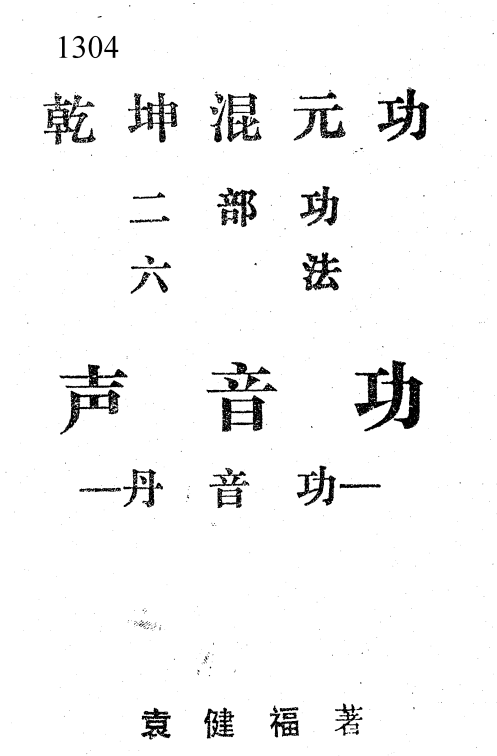 1304
乾坤混元功
二部功
六法
声音功
—丹音功—
袁健福著